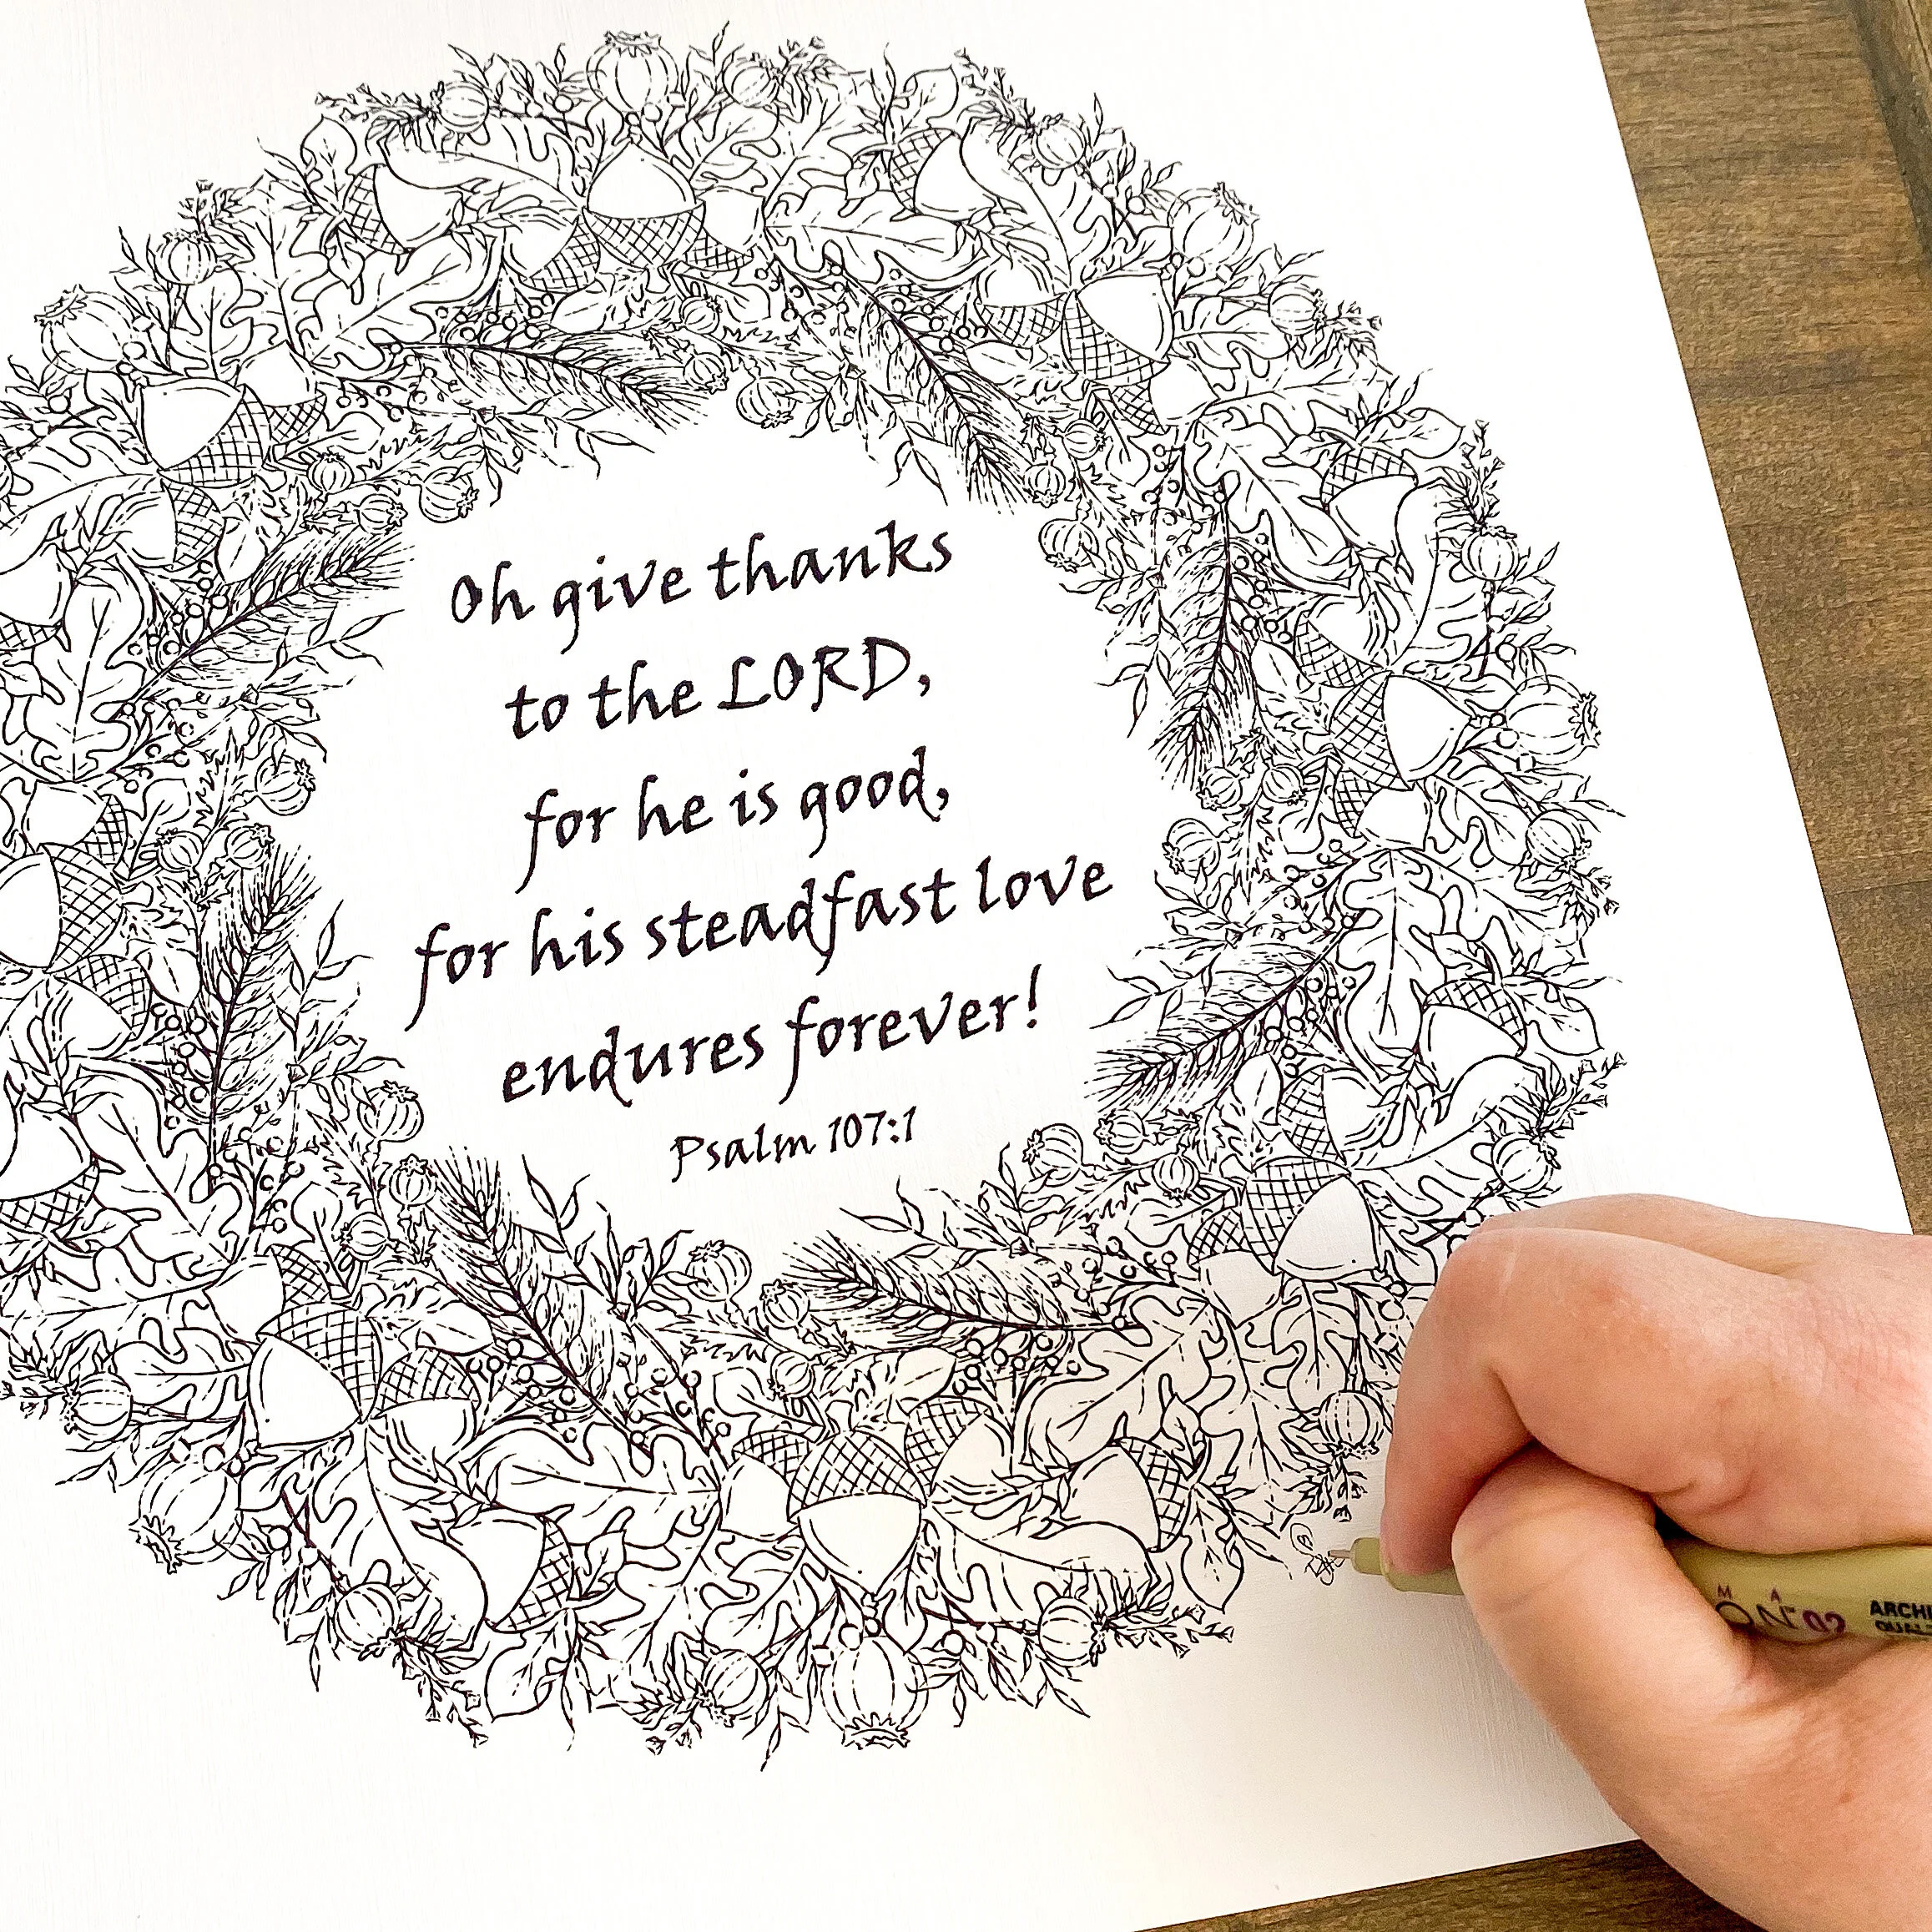 Oh give thanks
to the LORD,
for he is good,
for his steadfast love
endures forever!
Psalm 107:1
02